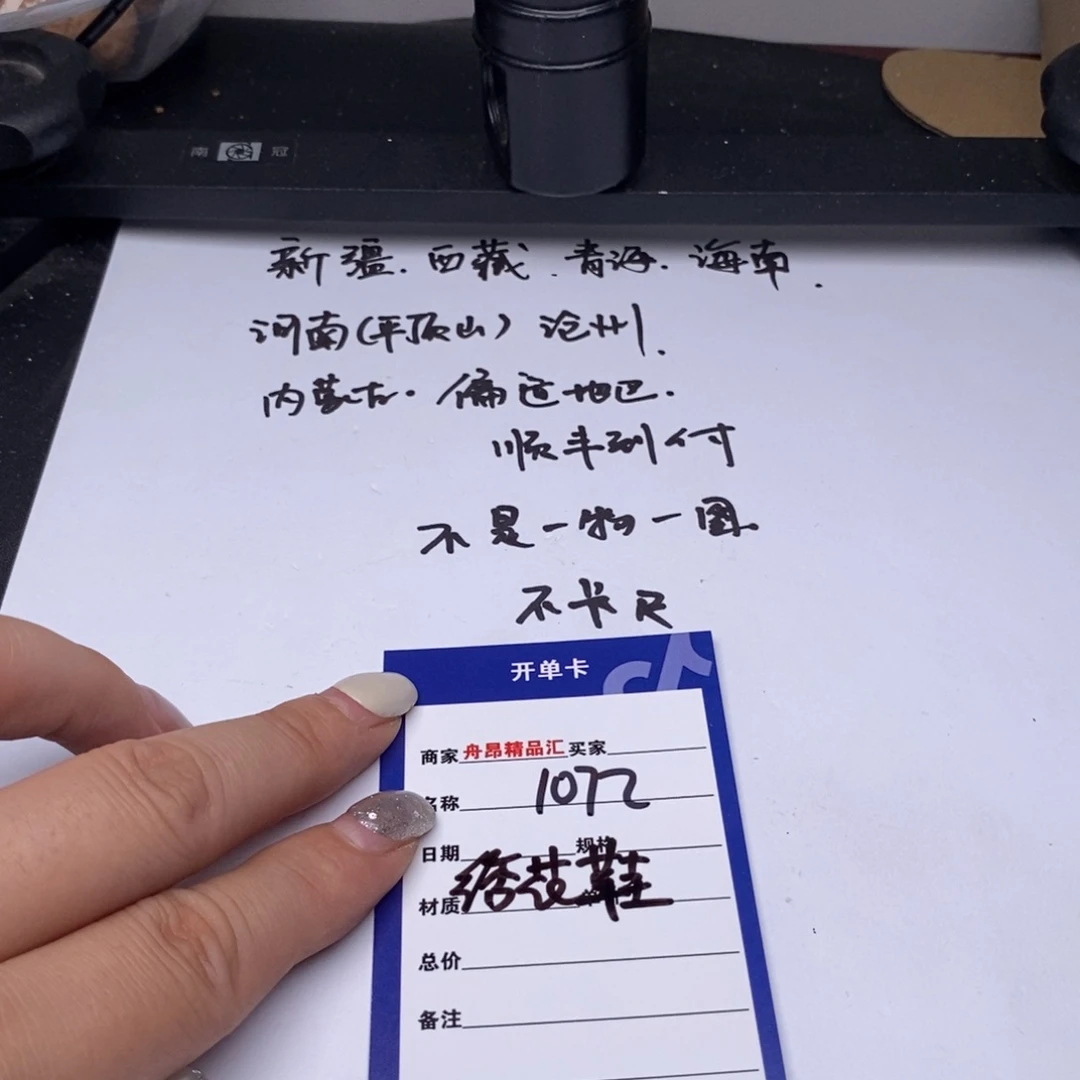 南 冠
新疆.西藏.青海.海南.
河南(平顶山)沧州.
内蒙古.偏远地区.
顺丰到付
不是一物一图.
不卡尺
开单卡
商家舟昂精品汇买家
名称 1072
日期 规格
材质
总价
备注